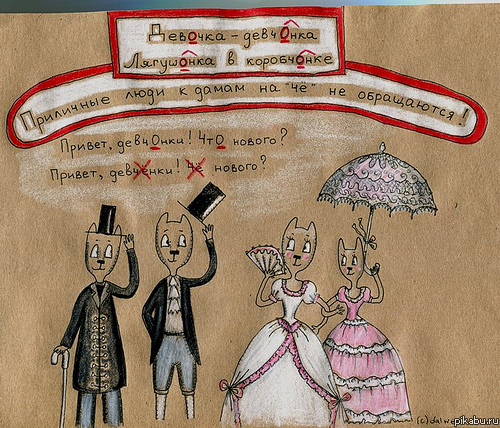 Девочка - девчОнка
ЛягушОнка в коробчОнке
Приличные люди к дамам на "чё" не обращаются!
Привет, девчОнки! ЧтО нового?
Привет, девчёнки! Чё нового?
pikabu.ru